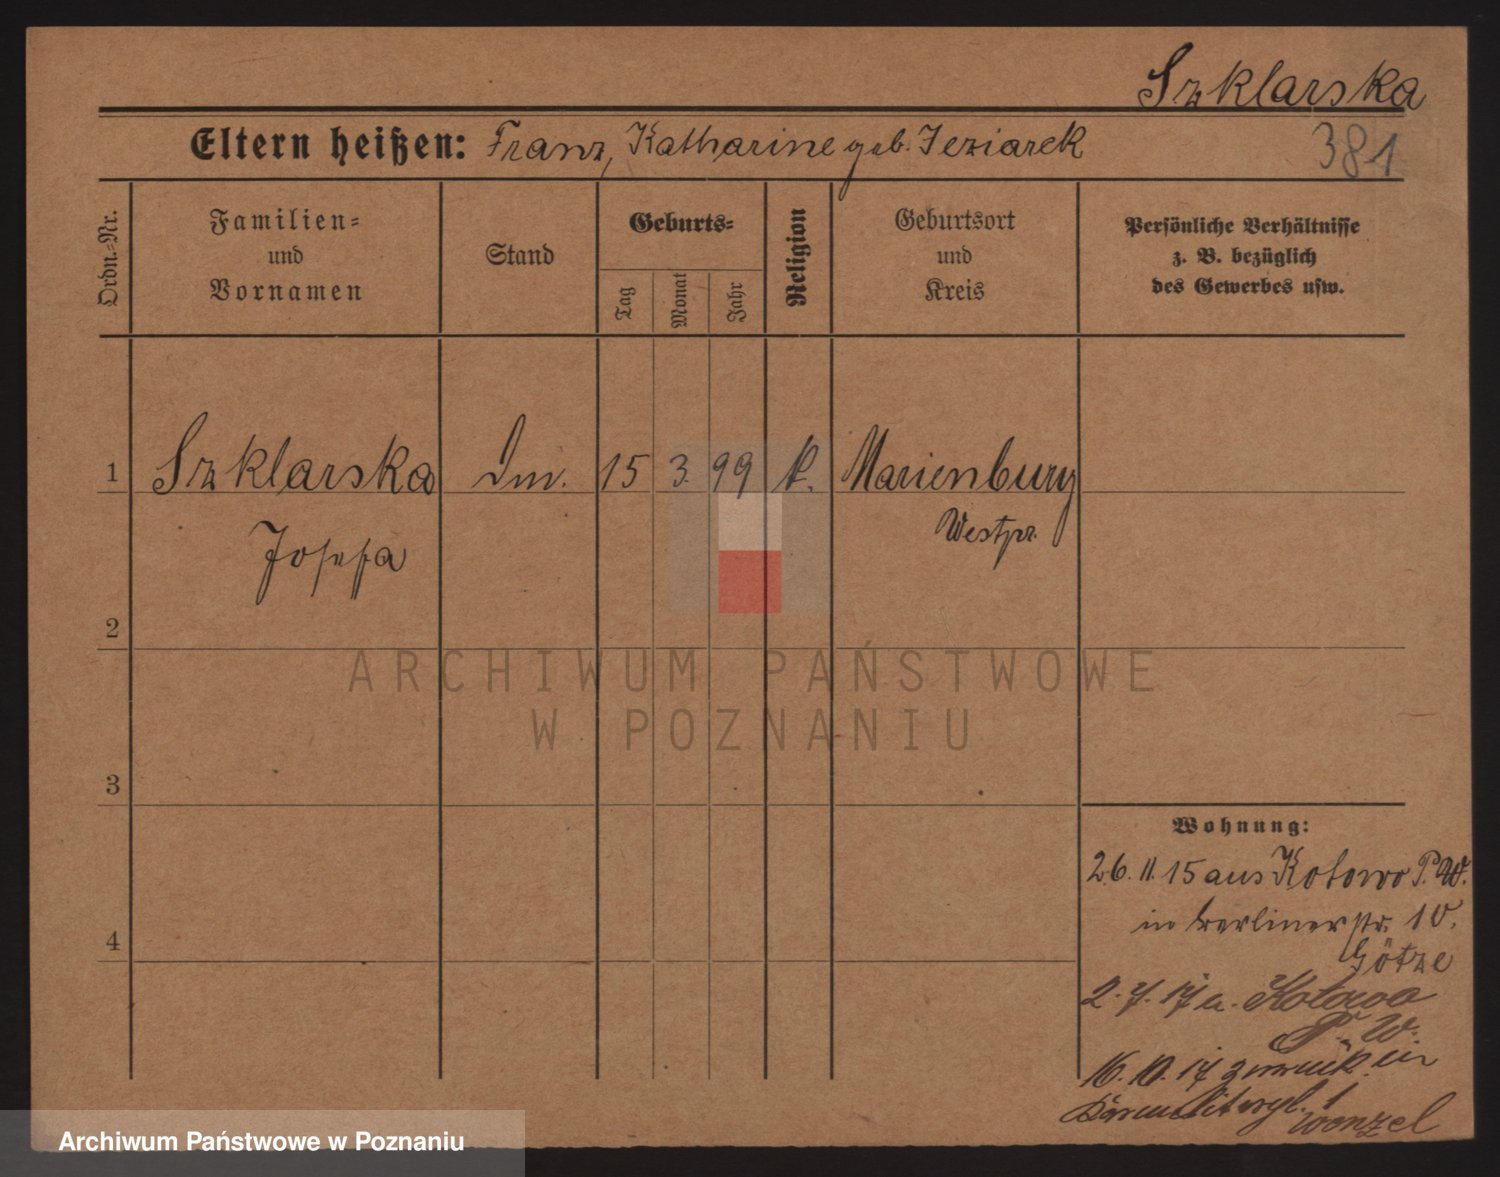 Szklarska
Eltern heißen: Franz, Katharine geb. Jeziarek
381
Ordn.-Nr.
Familien-
und
Vornamen
Stand
Geburts-
Tag
Monat
Jahr
Religion
Geburtsort
und
Kreis
Persönliche Verhältnisse
z. B. bezüglich
des Gewerbes usw.
1 Szklarska 15 3. 99 k. Marienburg
Westpr.
Josefa
2
3
4
Wohnung:
26. 11. 15 aus Kotowo P. W.
in Berlinerstr. 10.
Götze
2. 7. 17 n. Kotowo
P. W.
16. 10. 17 zurück in
1
Wenzel
ARCHIWUM PAŃSTWOWE
W POZNANIU
Archiwum Państwowe w Poznaniu